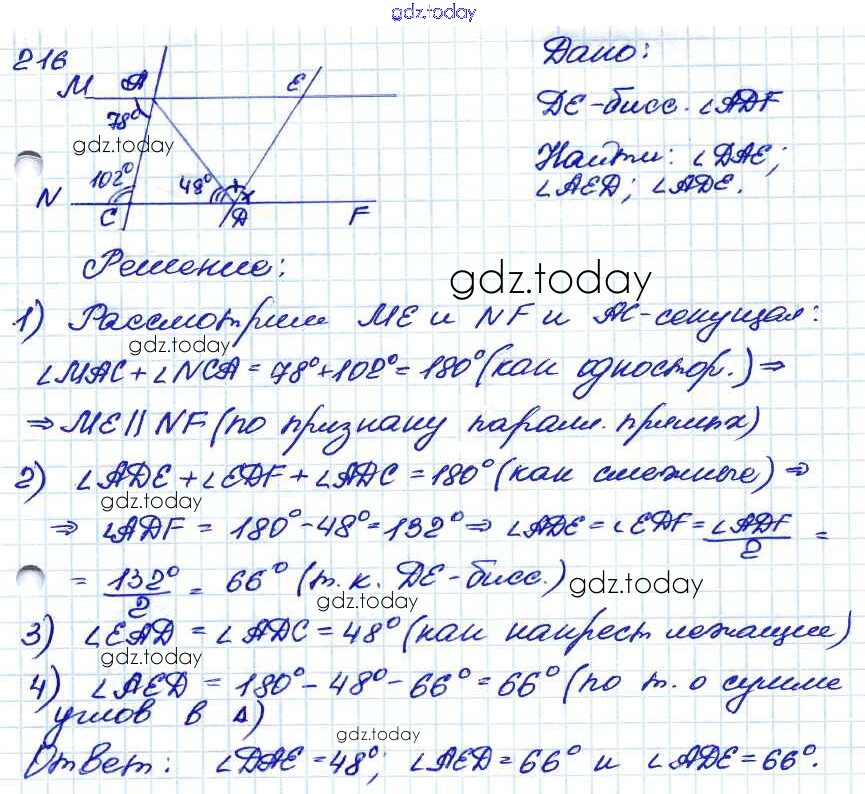 gdz.today
216
M A E
78°
gdz.today
102° 48° + x
N C D F
Дано:
DE-бисс. ∠ADF
Найти: ∠DAE;
∠AED; ∠ADE.
Решение:
gdz.today
1) Рассмотрим ME и NF и AC-секущая:
gdz.today
∠MAC+∠NCA=78°+102°=180°(как одностор.)⇒
⇒ME∥NF(по признаку паралл. прямых)
2) ∠ADE+∠EDF+∠ADC=180°(как смежные)⇒
gdz.today
⇒∠ADF=180°-48°=132°⇒∠ADE=∠EDF=∠ADF/2=
=132°/2=66°(т.к. DE-бисс.)
gdz.today
gdz.today
3) ∠EAD=∠ADC=48°(как накрест лежащие)
gdz.today
4) ∠AED=180°-48°-66°=66°(по т. о сумме
углов в Δ)
gdz.today
Ответ: ∠DAE=48°; ∠AED=66° и ∠ADE=66°.